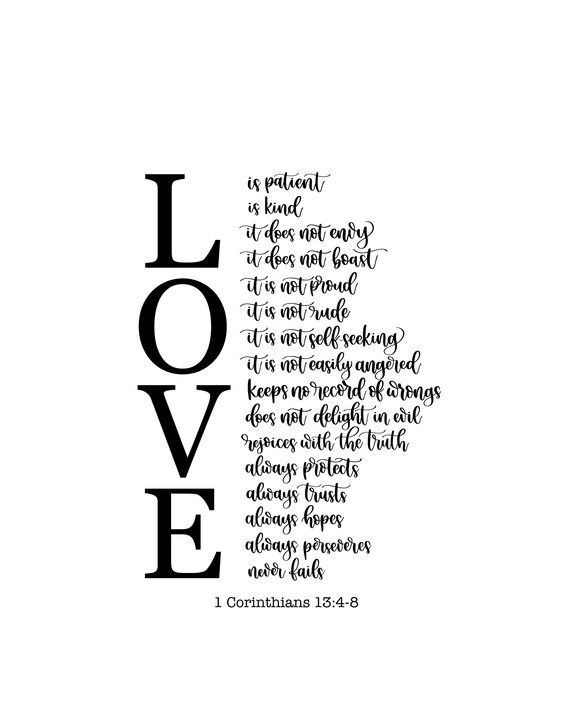 LOVE
is patient
is kind
it does not envy
it does not boast
it is not proud
it is not rude
it is not self-seeking
it is not easily angered
keeps no record of wrongs
does not delight in evil
rejoices with the truth
always protects
always trusts
always hopes
always perseveres
never fails
1 Corinthians 13:4-8